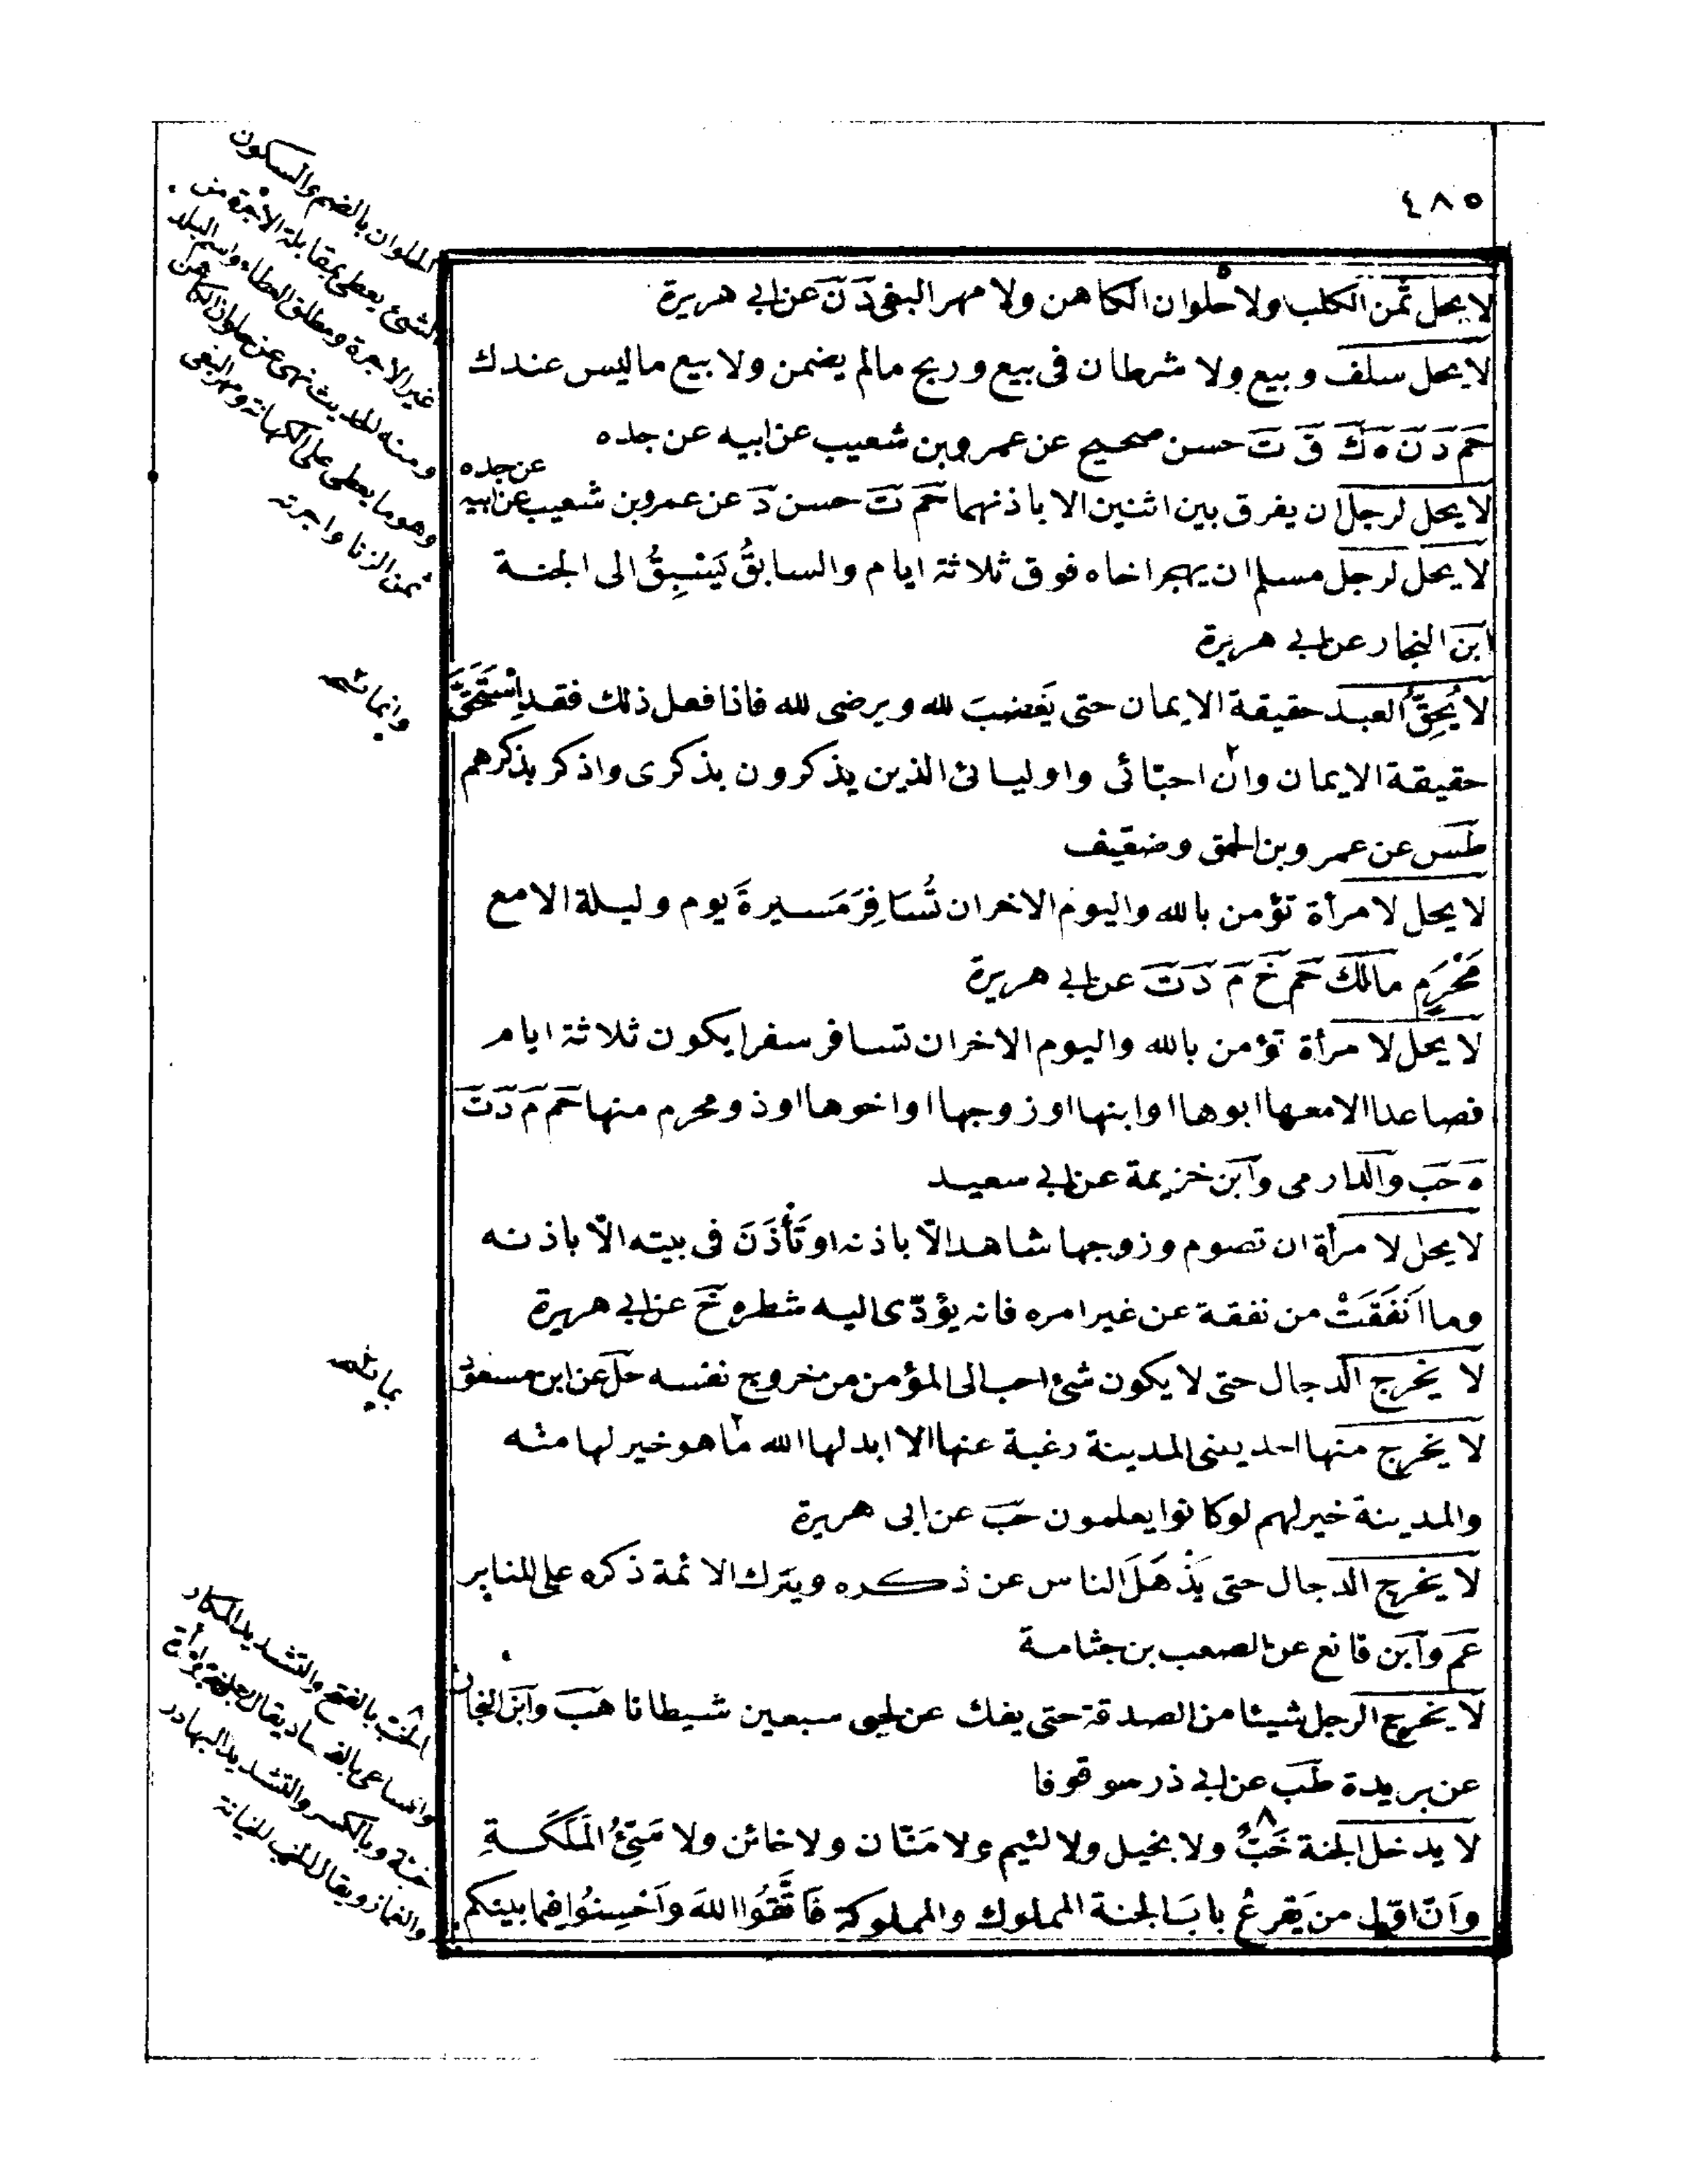 ٤٨٥
لا يحل ثمن الكلب ولا حلوان الكاهن ولا مهر البغى دَ نَ عن ابى هريرة
لا يحل سلف وبيع ولا شرطان فى بيع وربح مالم يضمن ولا بيع ماليس عندك
حَم دَ نَ هَ كَ قَ تَ حسن صحيح عن عمرو بن شعيب عن ابيه عن جده
لا يحل لرجل ان يفرق بين اثنين الا باذنهما حَم تَ حسن دَ عن عمرو بن شعيب عن ابيه عن جده
لا يحل لرجل مسلم ان يهجر اخاه فوق ثلاثة ايام والسابقُ يَسْبِقُ الى الجنة
ابن النجار عن ابى هريرة
لا يُحِقُّ العبد حقيقة الايمان حتى يَغضبَ لله ويرضى لله فاذا فعل ذلك فقد اِسْتَحَقَّ
حقيقة الايمان وان احبّائى واوليائى الذين يذكرون بذكرى واذكر بذكرهم
طَس عن عمرو بن الحمق وضعّيف
لا يحل لامرأة تؤمن بالله واليوم الاخر ان تُسَافِرَ مَسيرةَ يوم وليلة الا مع
مَحْرَمٍ مالك حَم خَ مَ دَ تَ عن ابى هريرة
لا يحل لا مرأة تؤمن بالله واليوم الاخر ان تسافر سفرا يكون ثلاثة ايام
فصاعدا الا معها ابوها او ابنها او زوجها او اخوها او ذو محرم منها حَم مَ دَ تَ
هَ حَب والدارمى وابن خزيمة عن ابى سعيد
لا يحل لا مرأة ان تصوم وزوجها شاهد الّا باذنه او تَأْذَنَ فى بيته الّا باذنه
وما اَنفَقَتْ من نفقة عن غير امره فانه يؤدّى اليه شطره خَ عن ابى هريرة
لا يخرج الدجال حتى لا يكون شئ احب الى المؤمن من خروج نفسه حَل عن ابن مسعود
لا يخرج منها احد يعنى المدينة رغبة عنها الا ابدلها الله ما هو خير لها منه
والمدينة خير لهم لو كانوا يعلمون حَب عن ابى هريرة
لا يخرج الدجال حتى يَذْهَلَ الناس عن ذكره ويترك الائمة ذكره على المنابر
عَم وابن قانع عن الصعب بن جثامة
لا يخرج الرجل شيئا من الصدقة حتى يفك عن لحيى سبعين شيطانا هَب وابن النجار
عن بريدة طَب عن ابى ذر موقوفا
لا يدخل الجنة خَبٌّ ولا بخيل ولا لئيم ولا مَنّان ولا خائن ولا سَيِّئُ المَلَكَةِ
وَاَنّ اوّل من يَقرعُ بابَ الجنة المملوك والمملوكة فَاتَّقُوا اللهَ وَاَحْسِنُوا فيما بينكم
الحلوان بالضم والسكون
الشئ يعطى بمقابلة الاجرة من
غير الاجرة ومطلق العطاء واسم البلد
ومنه الحديث نهى عن حلوان الكاهن
وهو ما يعطى على الكهانة ومهر البغى
ثمن الزنا واجرته
وانما نسخه
بما نسخه
الخب بالفتح والتشديد المكار
والساعى بالفساد يقال رجل خب وامرأة
خبة وبالكسر والتشديد
والغماز ويقال الخب الخيانة